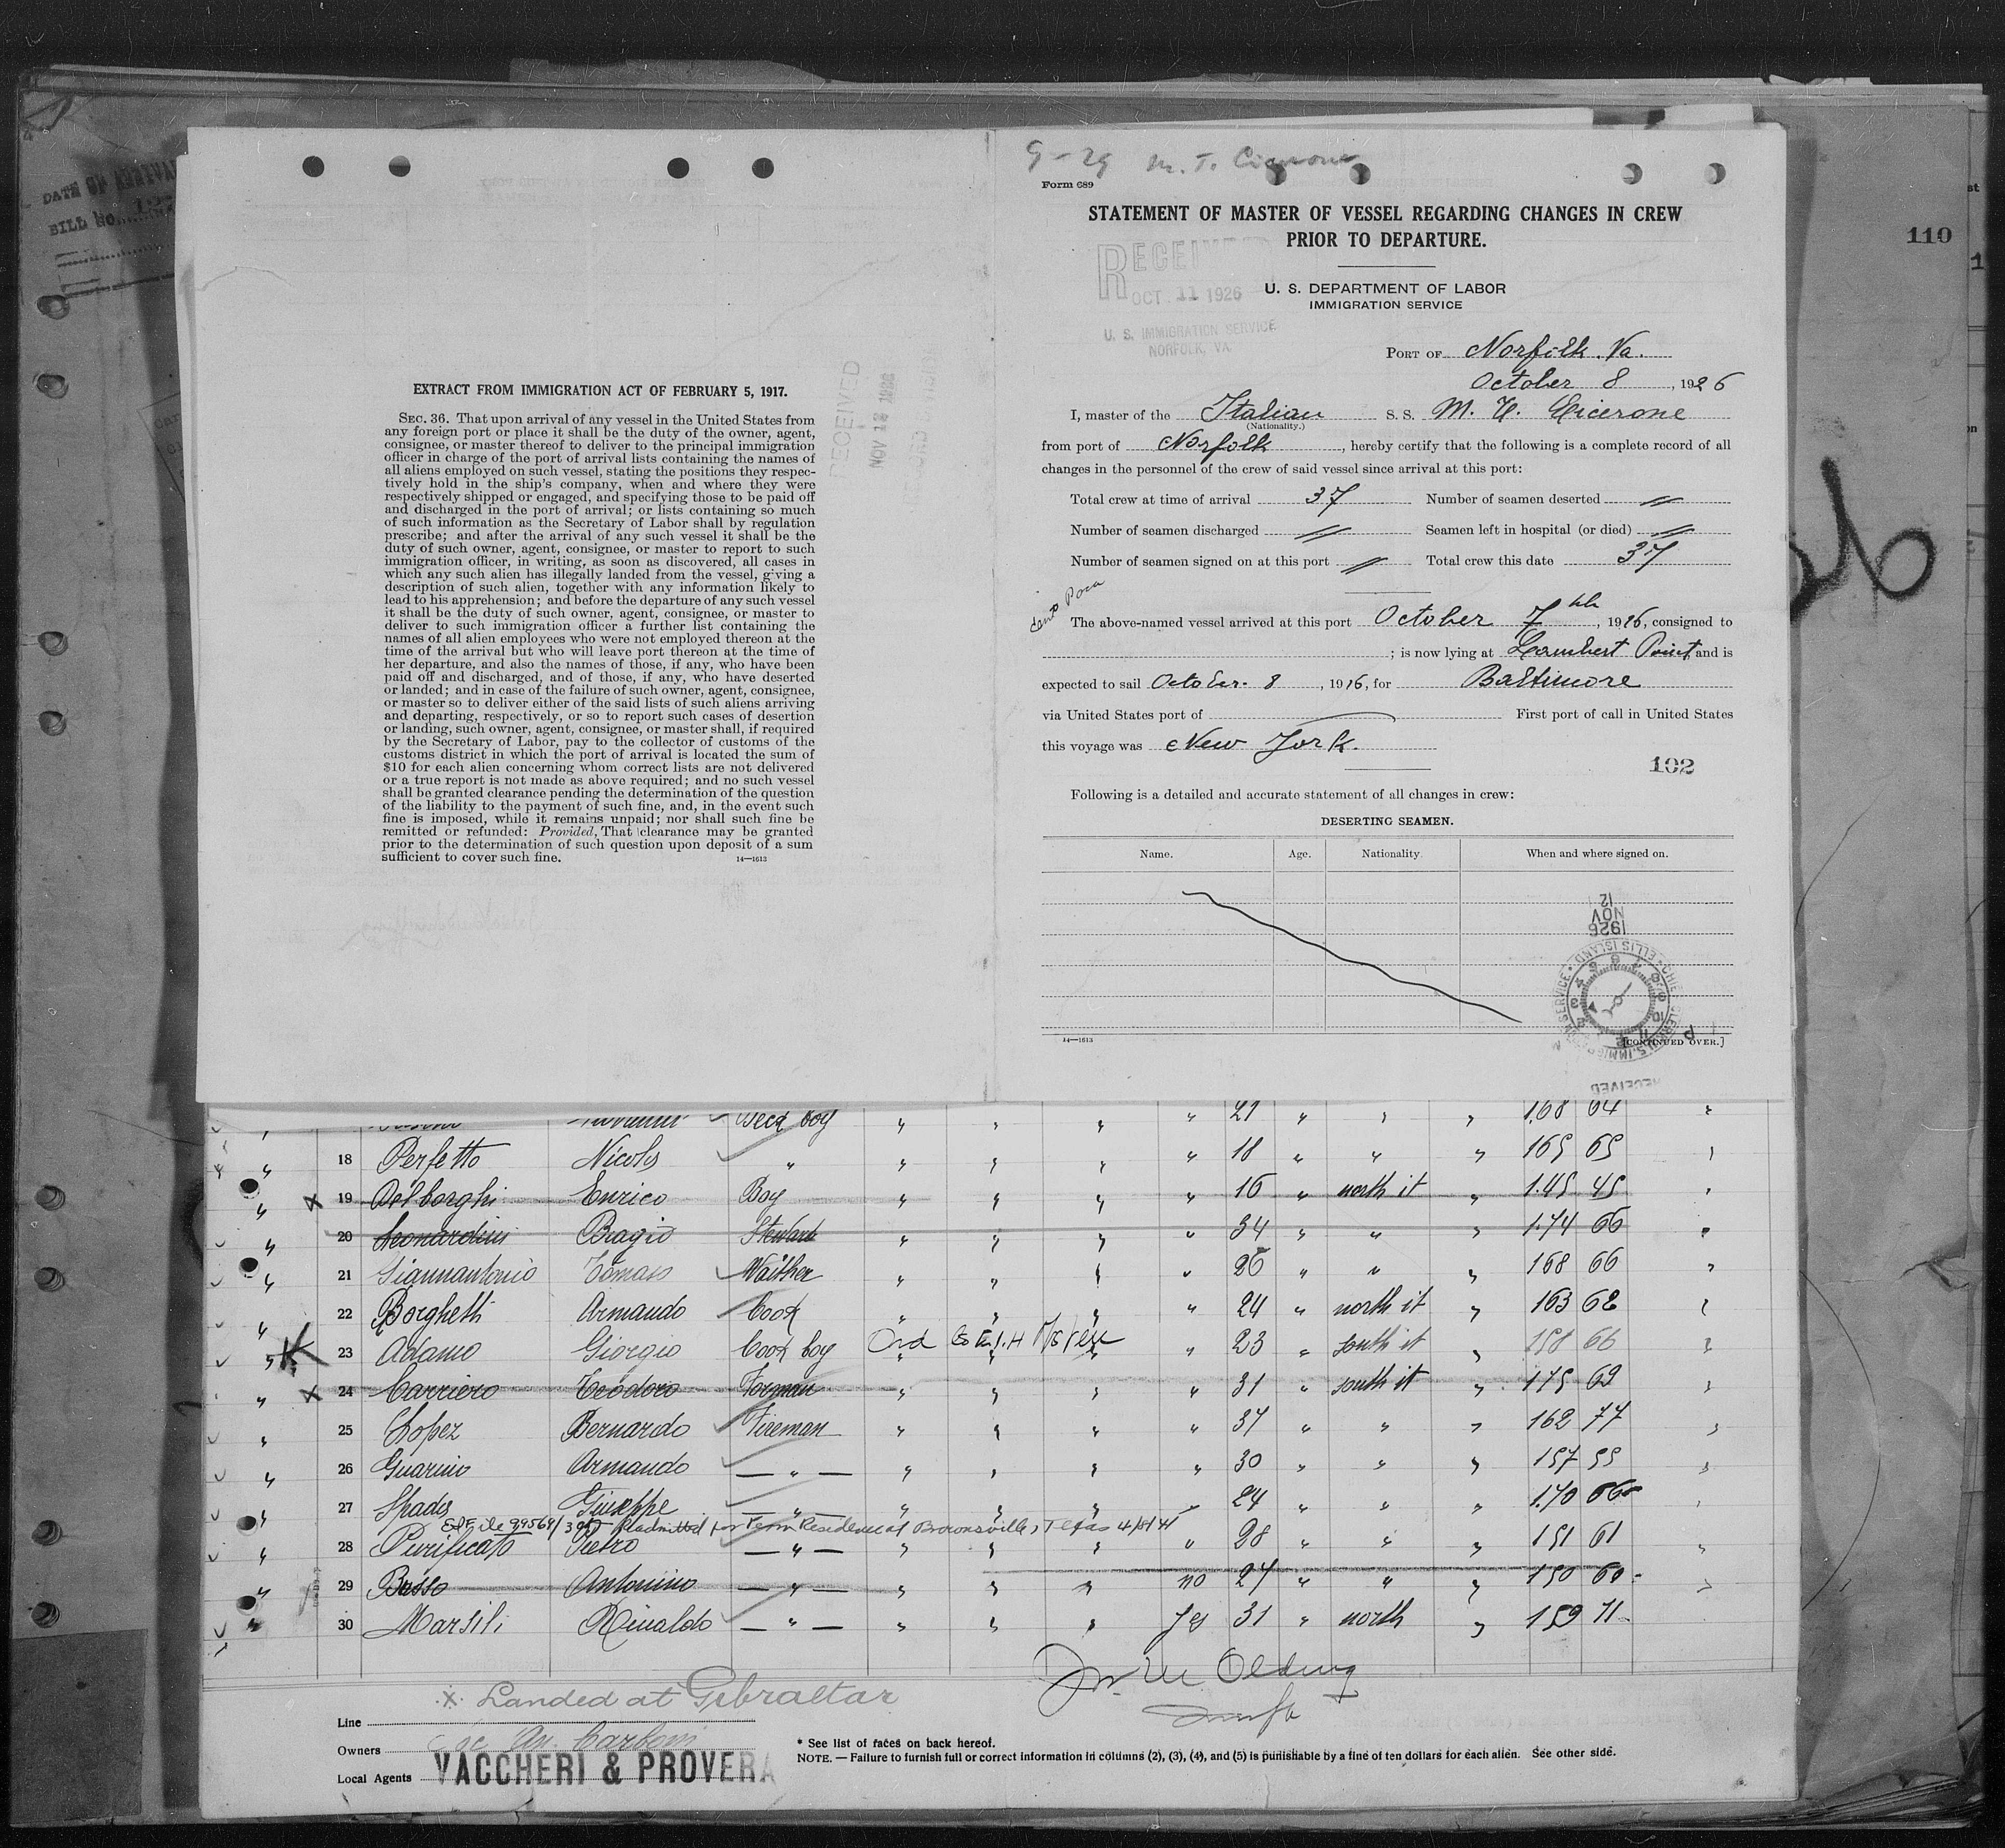 DATE OF
BILL No.
110
EXTRACT FROM IMMIGRATION ACT OF FEBRUARY 5, 1917.
SEC. 36. That upon arrival of any vessel in the United States from
any foreign port or place it shall be the duty of the owner, agent,
consignee, or master thereof to deliver to the principal immigration
officer in charge of the port of arrival lists containing the names of
all aliens employed on such vessel, stating the positions they respec-
tively hold in the ship's company, when and where they were
respectively shipped or engaged, and specifying those to be paid off
and discharged in the port of arrival; or lists containing so much
of such information as the Secretary of Labor shall by regulation
prescribe; and after the arrival of any such vessel it shall be the
duty of such owner, agent, consignee, or master to report to such
immigration officer, in writing, as soon as discovered, all cases in
which any such alien has illegally landed from the vessel, giving a
description of such alien, together with any information likely to
lead to his apprehension; and before the departure of any such vessel
it shall be the duty of such owner, agent, consignee, or master to
deliver to such immigration officer a further list containing the
names of all alien employees who were not employed thereon at the
time of the arrival but who will leave port thereon at the time of
her departure, and also the names of those, if any, who have been
paid off and discharged, and of those, if any, who have deserted
or landed; and in case of the failure of such owner, agent, consignee,
or master so to deliver either of the said lists of such aliens arriving
and departing, respectively, or so to report such cases of desertion
or landing, such owner, agent, consignee, or master shall, if required
by the Secretary of Labor, pay to the collector of customs of the
customs district in which the port of arrival is located the sum of
$10 for each alien concerning whom correct lists are not delivered
or a true report is not made as above required; and no such vessel
shall be granted clearance pending the determination of the question
of the liability to the payment of such fine, and, in the event such
fine is imposed, while it remains unpaid; nor shall such fine be
remitted or refunded: Provided, That clearance may be granted
prior to the determination of such question upon deposit of a sum
sufficient to cover such fine.
14—1613
9-29 M. T. Cicerone
Form 689
STATEMENT OF MASTER OF VESSEL REGARDING CHANGES IN CREW
PRIOR TO DEPARTURE.
RECEIVED
OCT 11 1926
U. S. IMMIGRATION SERVICE
NORFOLK, VA.
U. S. DEPARTMENT OF LABOR
IMMIGRATION SERVICE
PORT OF Norfolk Va.
October 8, 1926
I, master of the Italian S. S. M. T. Cicerone
(Nationality.)
from port of Norfolk, hereby certify that the following is a complete record of all
changes in the personnel of the crew of said vessel since arrival at this port:
Total crew at time of arrival 37 Number of seamen deserted "
Number of seamen discharged " Seamen left in hospital (or died) "
Number of seamen signed on at this port " Total crew this date 37
The above-named vessel arrived at this port October 7th, 1926, consigned to
; is now lying at Lambert Point and is
expected to sail October 8, 1926, for Baltimore
via United States port of First port of call in United States
this voyage was New York.
102
Following is a detailed and accurate statement of all changes in crew:
DESERTING SEAMEN.
Name. Age. Nationality. When and where signed on.
1926
NOV
12
14—1613
[CONTINUED OVER.]
Deck boy 21 " 168 64
18 Perfetto Nicola " 18 " " 165 65
19 Delborghi Enrico Boy 16 " north it 1.45 45
20 Leonardini Biagio Steward 34 " " 1.74 66
21 Giannantonio Tomaso Waither 26 " " 168 66
22 Borghetti Armando Cook 24 " north it 163 62
23 Adamo Giorgio Cook boy 23 " south it 158 66
24 Carriero Teodoro Forman 31 " south it 175 69
25 Lopez Bernardo Fireman 37 " " 162 77
26 Guarino Armando — " — 30 " " 157 55
27 Spada Giuseppe — " — 24 " " 1.70 66
readmitted for Perm Residence at Brownsville, Texas
28 Purificato Pietro — " — 28 " " 151 61
29 Basso Antonino — " — no 27 " " 150 60
30 Marsili Rinaldo — " — yes 31 " north 159 71
x Landed at Gibraltar
Line
Owners
Local Agents VACCHERI & PROVERA
* See list of faces on back hereof.
NOTE. — Failure to furnish full or correct information in columns (2), (3), (4), and (5) is punishable by a fine of ten dollars for each alien. See other side.